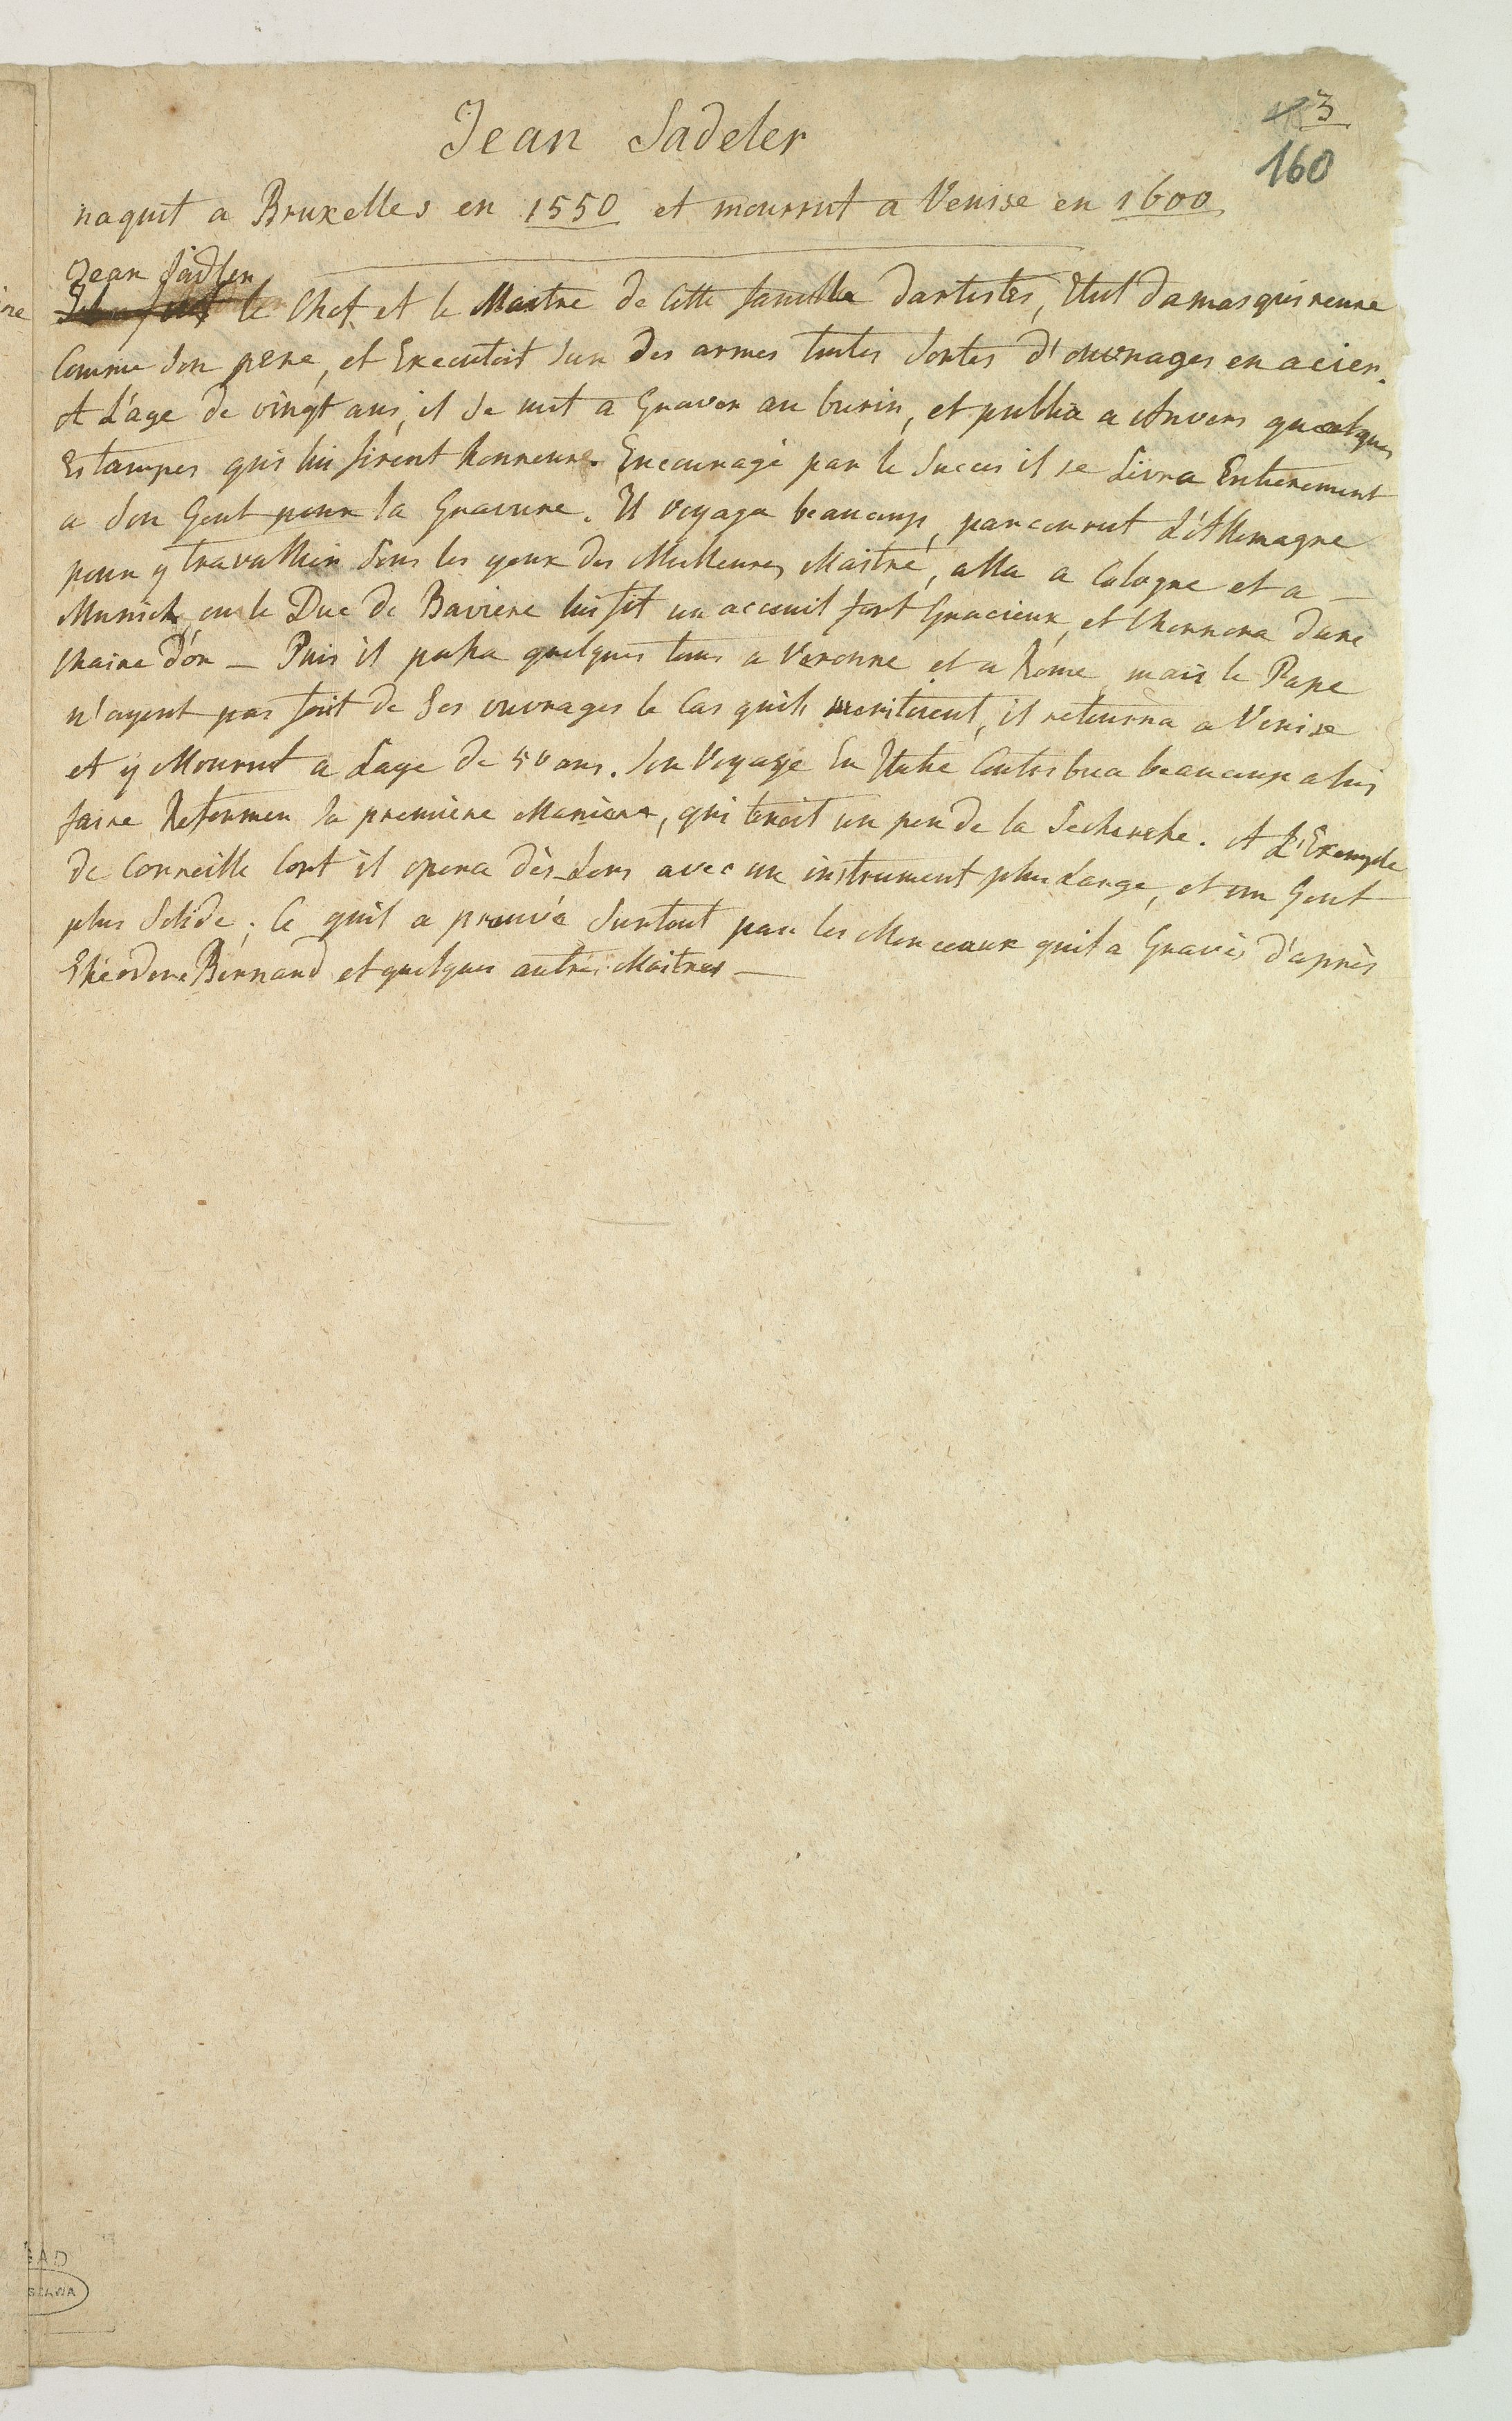 3
160
Jean Sadeler
naquit a Bruxelles en 1550 et mourrut a Venise en 1600
Jean Sadler
le Chef et le Maitre de Cette famille dartistes, Etut damasquineure
Comme Son pere, et Executoit Sur des armes toutes Sortes d'ouvrages en acier.
A L'age de vingt ans, il Se mit a Graver au burin, et publia a Anvers quelques
Estampes quis lui firent honneure. Encouragé par le Succes il se Livra Entierement
a Son Gout pour la Gravure. Il voyaga beaucoup, parcourut L'Allemagne
pour y travaillier Sous les yeux des Meilleures Maitre, alla a Cologne et a —
Munich, ou le Duc de Baviere lui fit un acceuil fort Gracieux, et l'honnora dune
Chaine D'or — Puis il passa quelques tems a Veronne et a Rome, mais le Pape
n'ayent pas fait de Ses ouvrages le Cas quils meritoient, il retourna a Venise
et y Mourrut a Lage de 50 ans. Son Voyage En Italie Contribua beaucoup a lui
faire Reformer Sa première Maniere, qui tenoit un peu de la Secheresse. A L'Exemple
de Corneille Cort il opera dès-Lors avec un instrument plus Large, et un Gout
plus Solide; Ce quil a prouvée Surtout par les Morceaux quil a Gravés d'après
Théodore Bernard et quelques autres Maitres —